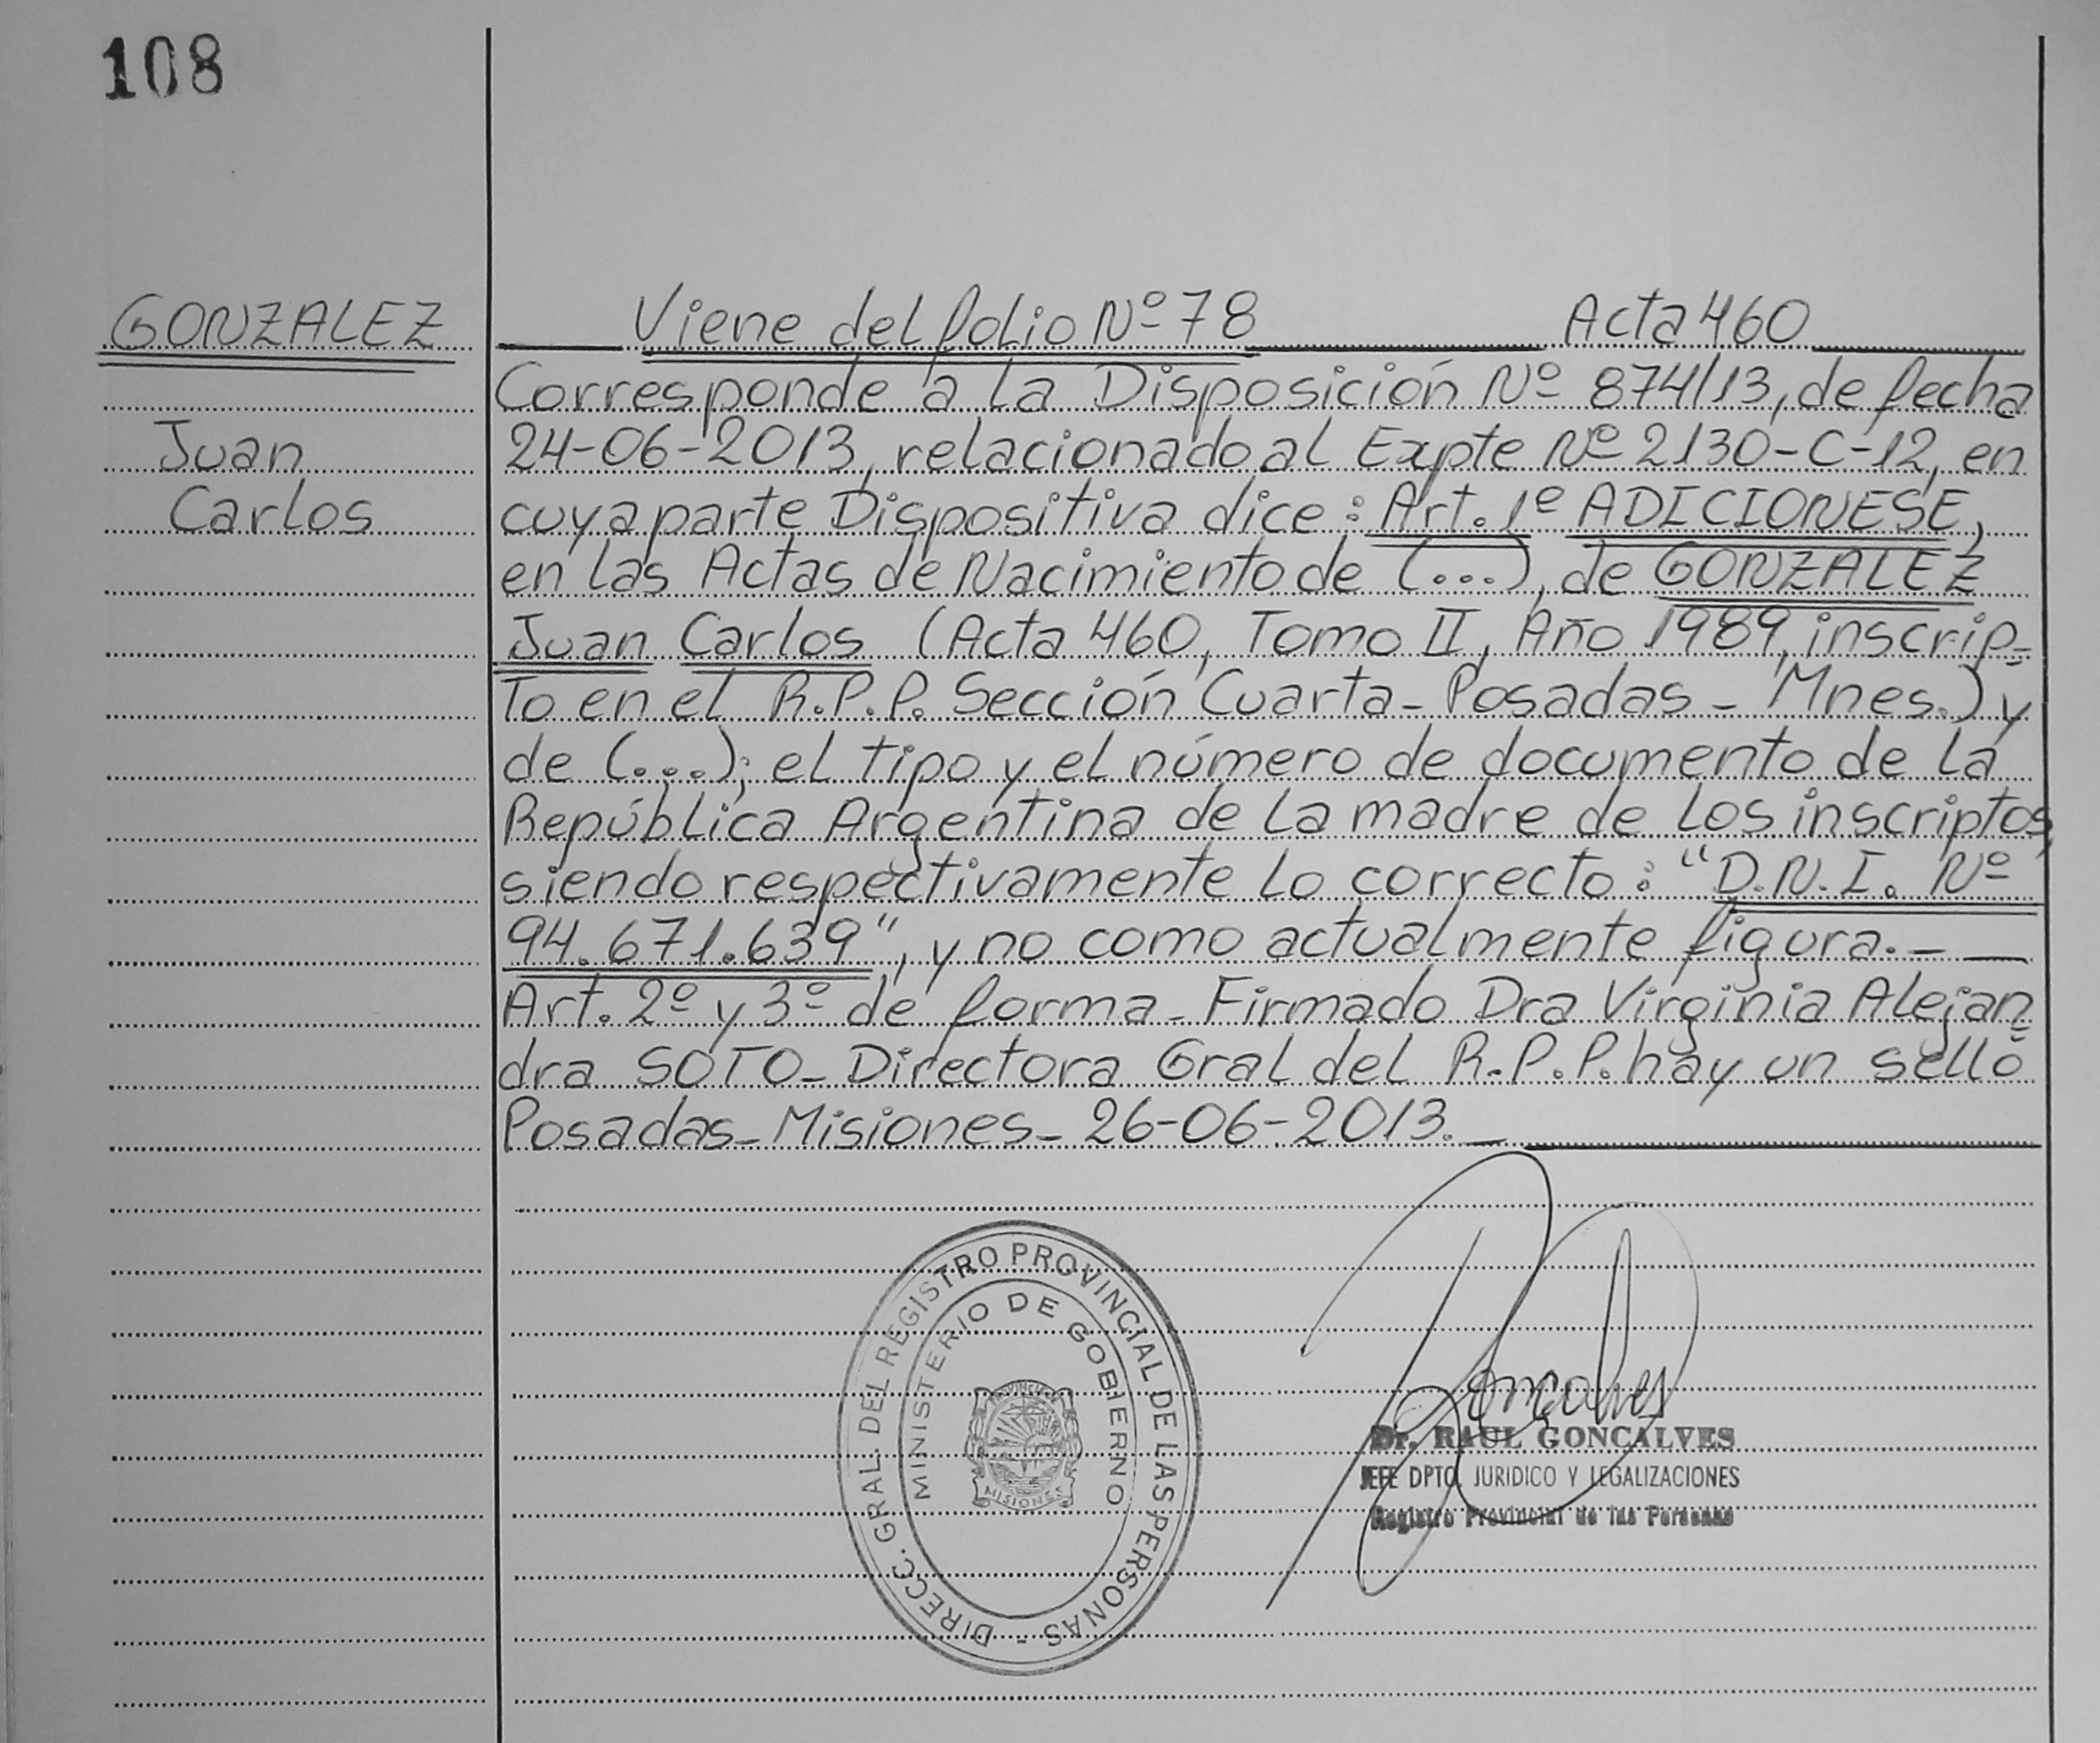 108
GONZALEZ
Juan
Carlos
Viene del folio Nº 78 Acta 460
Corresponde a la Disposición Nº 874/13, de fecha
24-06-2013, relacionado al Expte Nº 2130-C-12, en
cuya parte Dispositiva dice: Art. 1º ADICIONESE,
en las Actas de Nacimiento de (...), de GONZALEZ
Juan Carlos (Acta 460, Tomo II, Año 1989, inscrip=
to en el R.P.P. Sección Cuarta - Posadas - Mnes.) y
de (...); el tipo y el número de documento de la
República Argentina de la madre de los inscriptos,
siendo respectivamente lo correcto: "D.N.I. Nº
94.671.639", y no como actualmente figura.-
Art. 2º y 3º de forma - Firmado Dra Virginia Alejan=
dra SOTO - Directora Gral del R.P.P. hay un sello
Posadas - Misiones - 26-06-2013.-
DIRECC. GRAL. DEL REGISTRO PROVINCIAL DE LAS PERSONAS -
MINISTERIO DE GOBIERNO
PROVINCIA DE
MISIONES
Goncalves
Dr. RAUL GONCALVES
JEFE DPTO. JURIDICO Y LEGALIZACIONES
Registro Provincial de las Personas